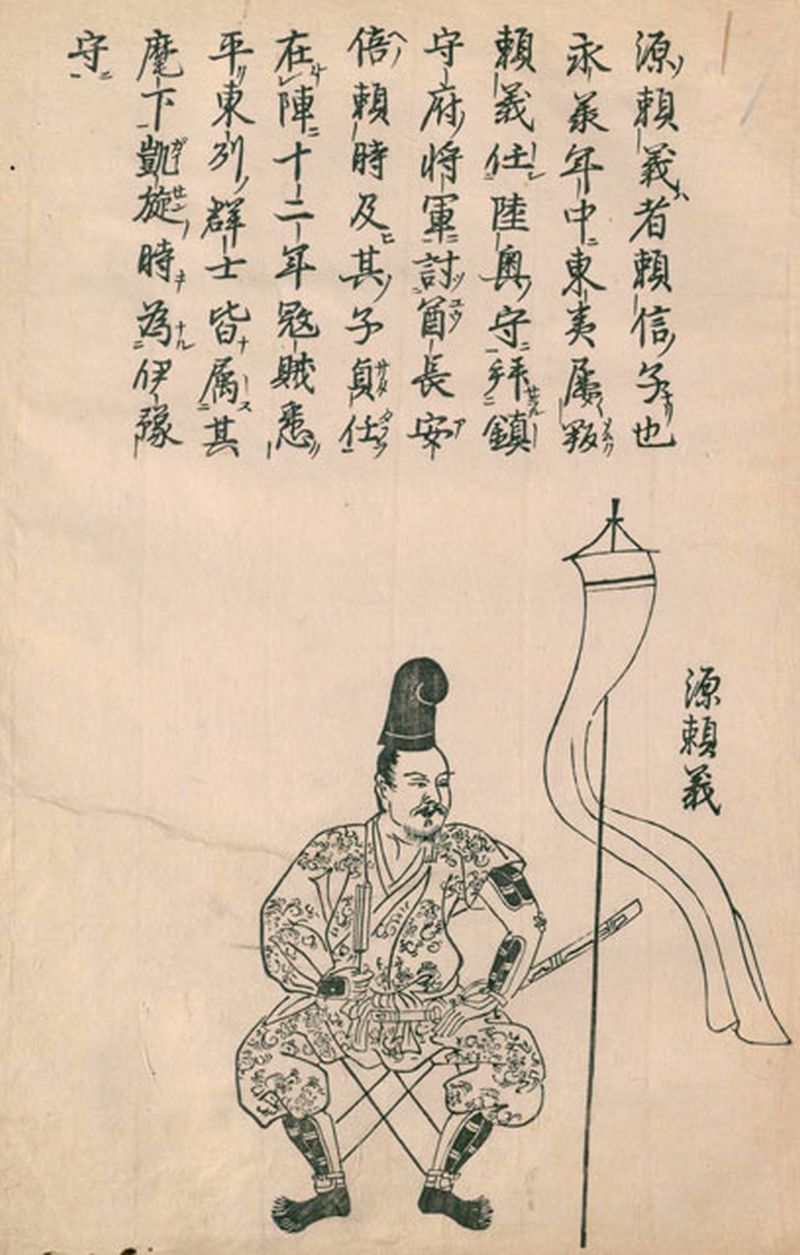 源頼義者頼信子也
永承年中東夷屡叛
頼義任陸奥守拝鎮
守府将軍討酋長安
倍頼時及其子貞任
在陣十二年冦賊悉
平東列群士皆属其
麾下凱旋時為伊豫
守
源頼義